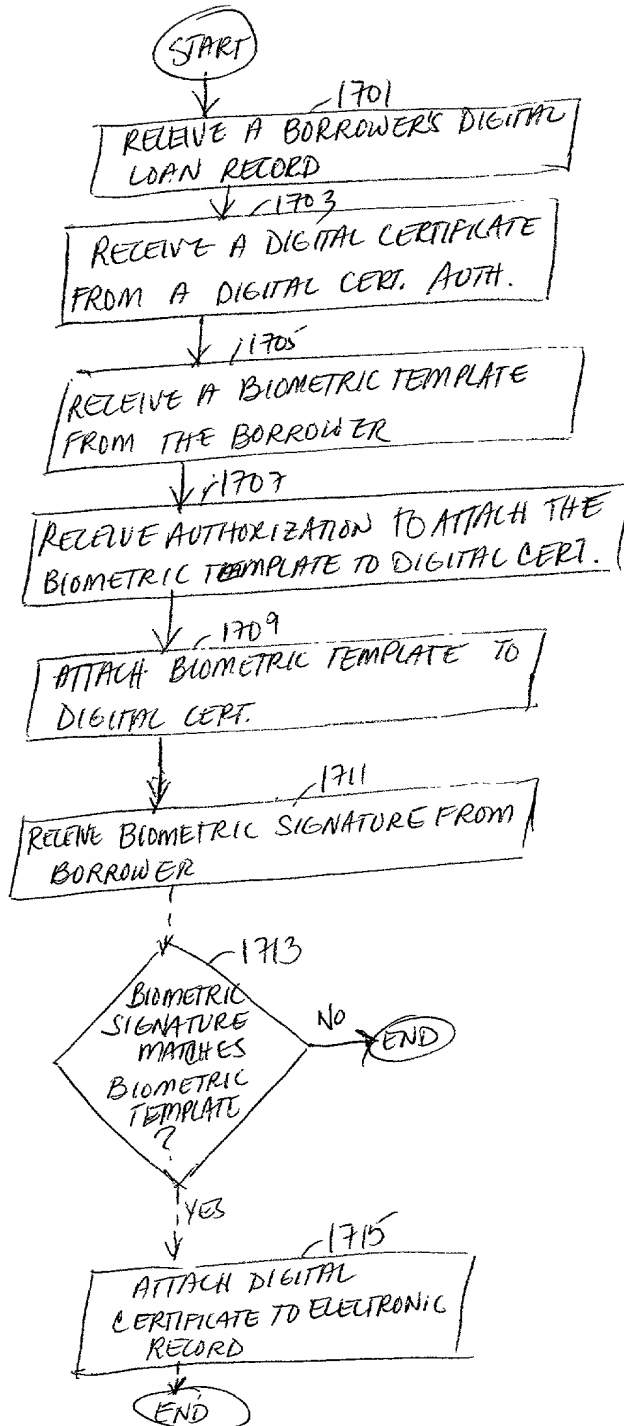 START
1701
RECEIVE A BORROWER'S DIGITAL
LOAN RECORD
1703
RECEIVE A DIGITAL CERTIFICATE
FROM A DIGITAL CERT. AUTH.
1705
RECEIVE A BIOMETRIC TEMPLATE
FROM THE BORROWER
1707
RECEIVE AUTHORIZATION TO ATTACH THE
BIOMETRIC TEMPLATE TO DIGITAL CERT.
1709
ATTACH BIOMETRIC TEMPLATE TO
DIGITAL CERT.
1711
RECEIVE BIOMETRIC SIGNATURE FROM
BORROWER
1713
BIOMETRIC
SIGNATURE
MATCHES
BIOMETRIC
TEMPLATE
?
NO
END
YES
1715
ATTACH DIGITAL
CERTIFICATE TO ELECTRONIC
RECORD
END